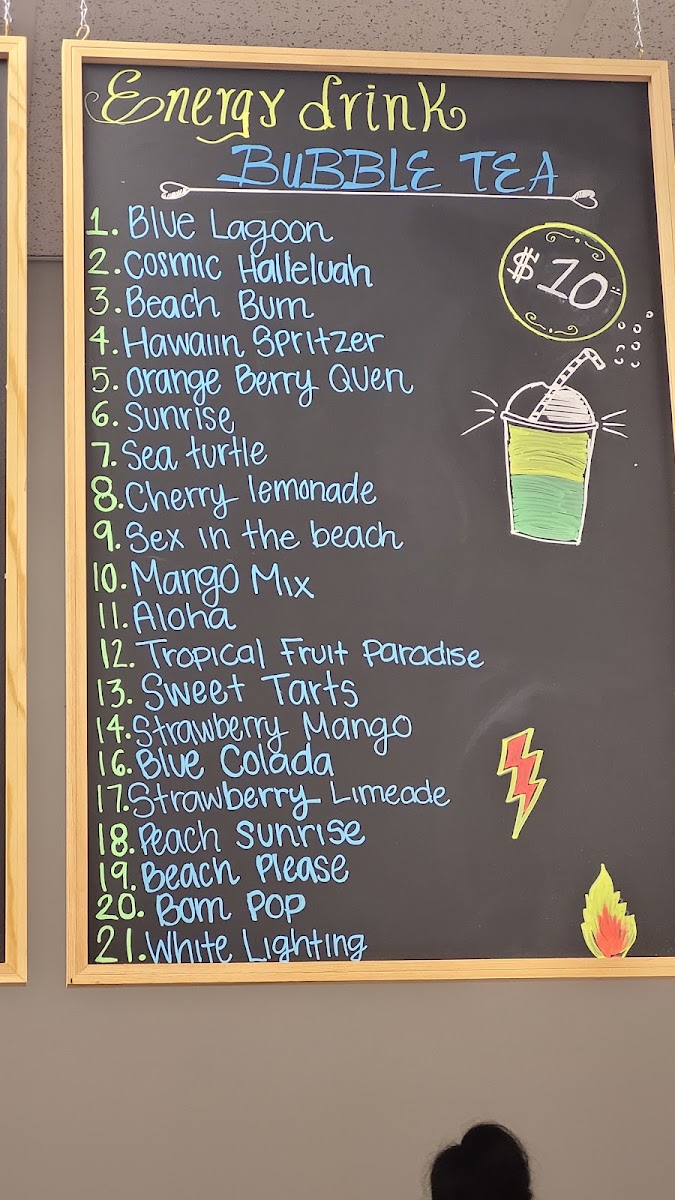 Energy drink
BUBBLE TEA
$10
1. Blue Lagoon
2. Cosmic Halleluah
3. Beach Bum
4. Hawaiin Spritzer
5. Orange Berry Quen
6. Sunrise
7. Sea turtle
8. Cherry lemonade
9. Sex in the beach
10. Mango Mix
11. Aloha
12. Tropical Fruit Paradise
13. Sweet Tarts
14. Strawberry Mango
16. Blue Colada
17. Strawberry Limeade
18. Peach Sunrise
19. Beach Please
20. Bom Pop
21. White Lighting